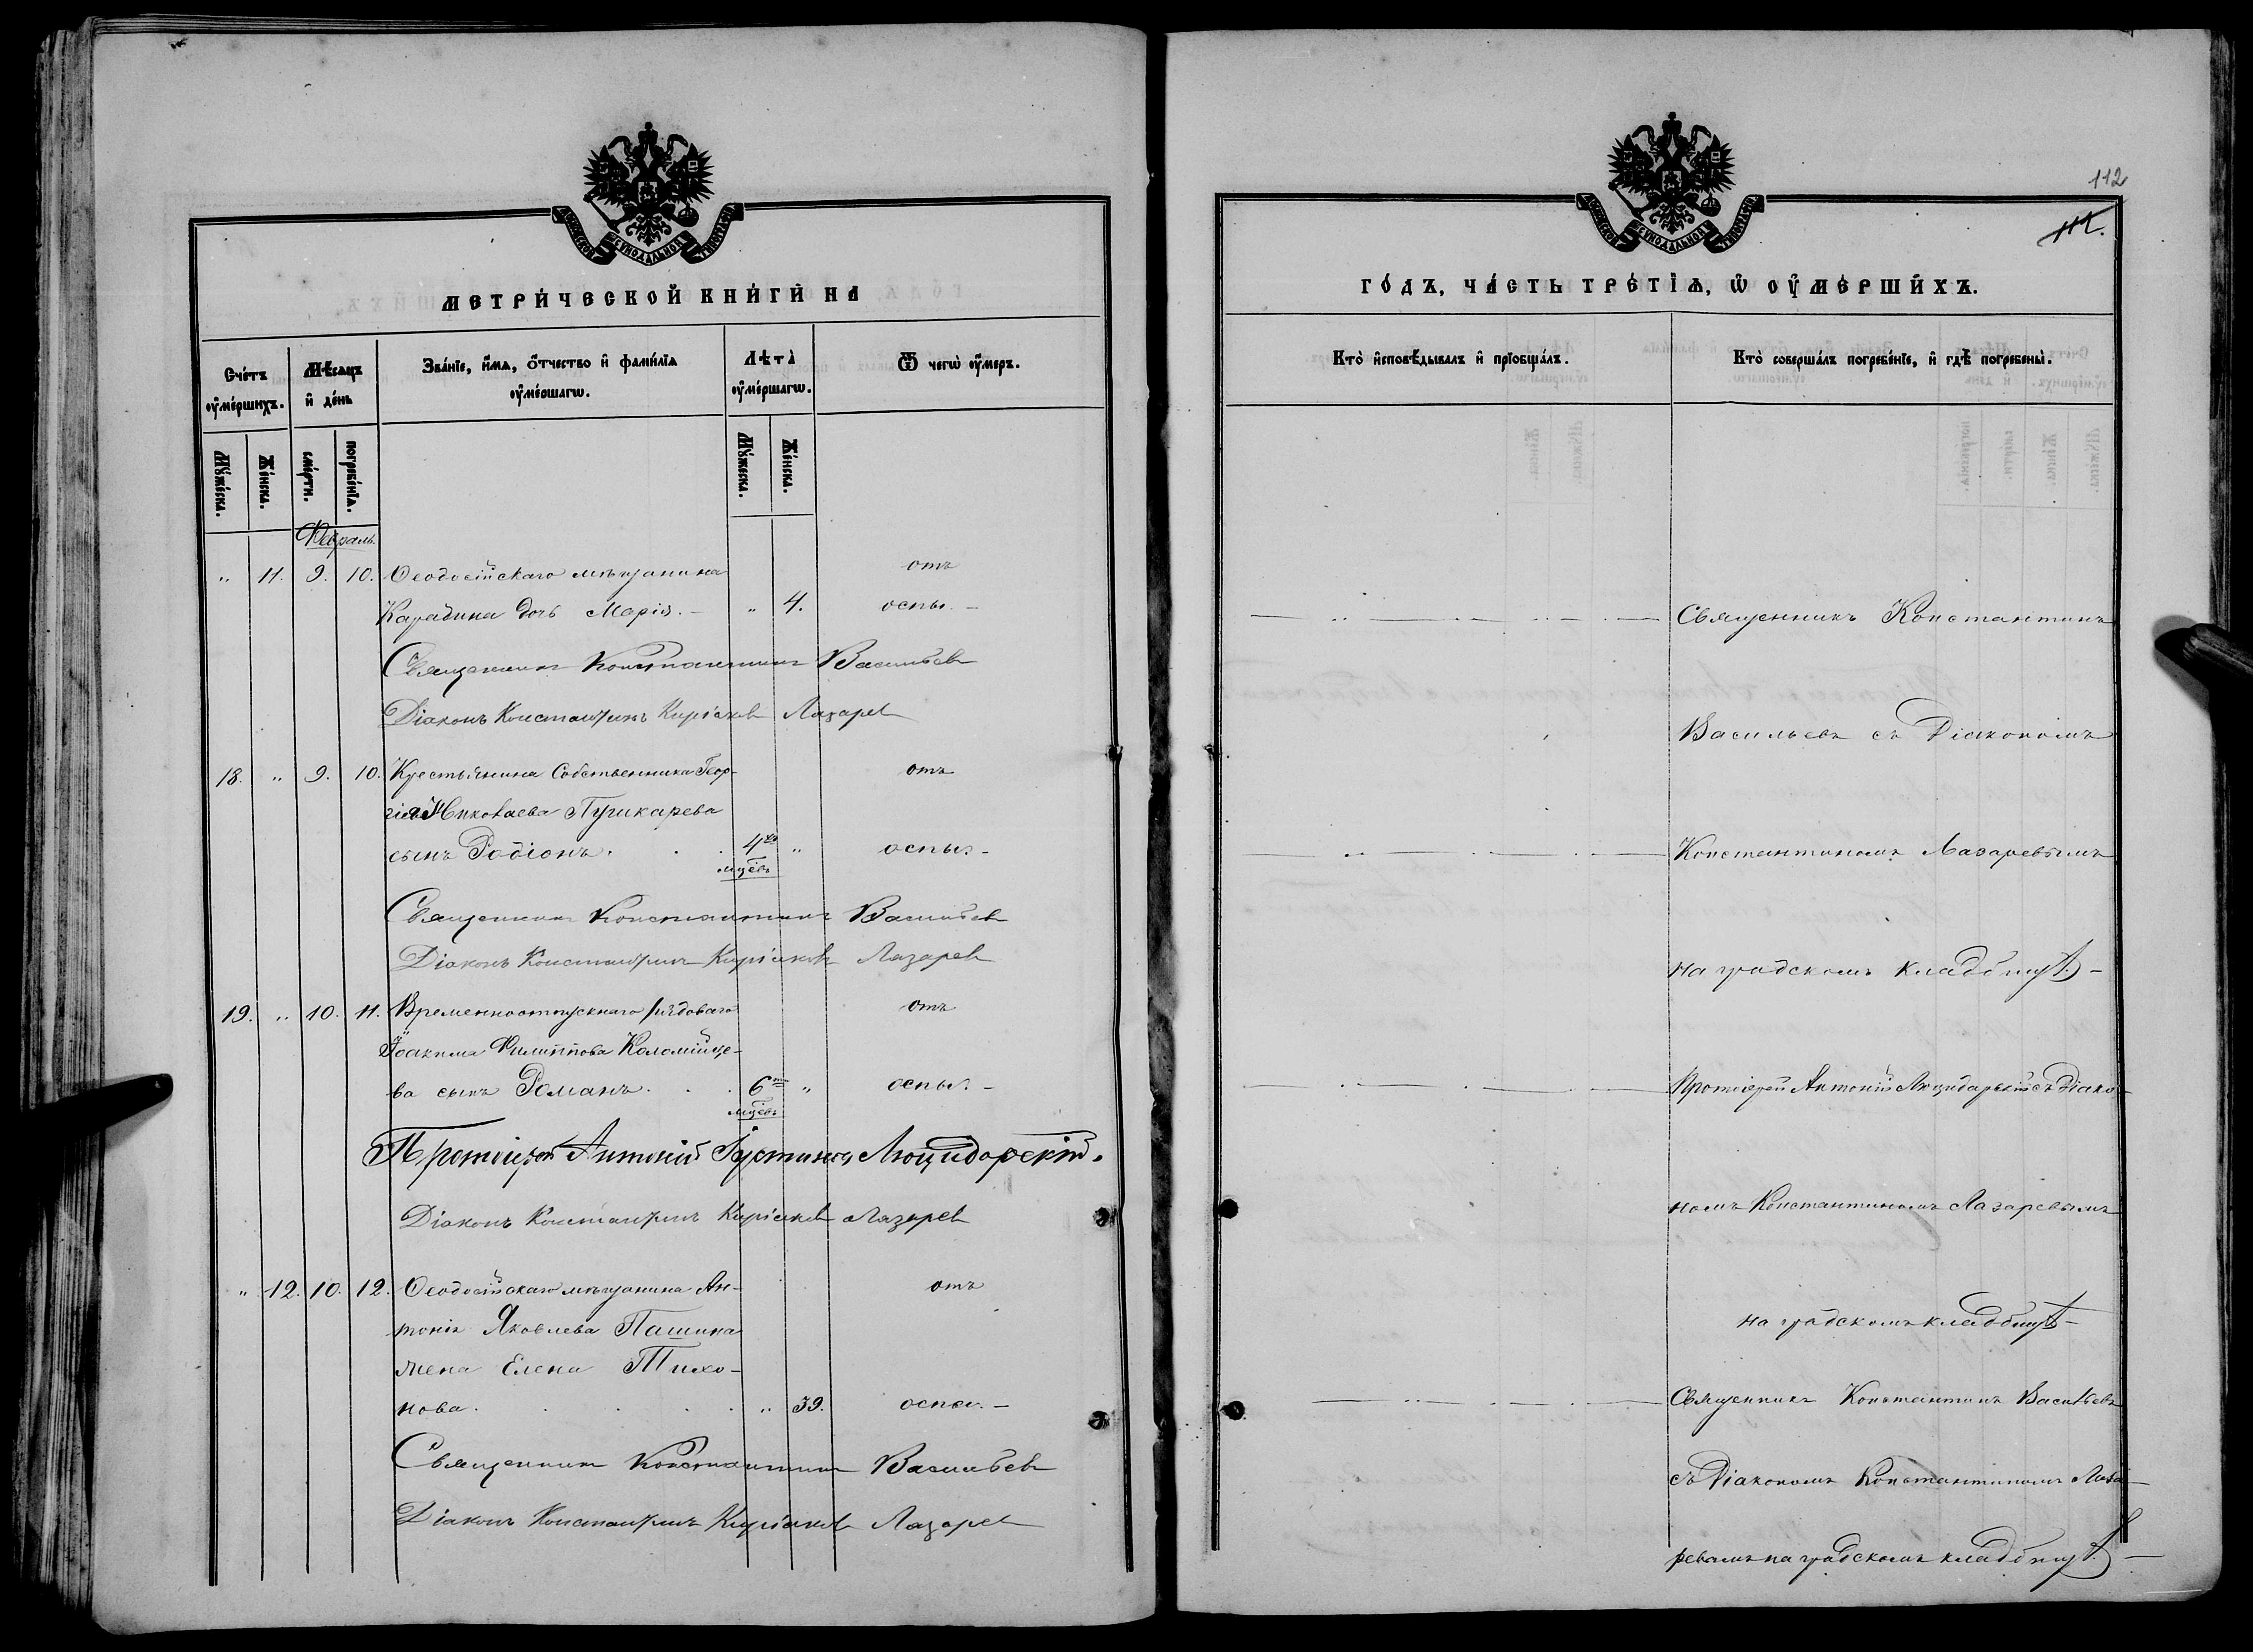 МОСКОВСКОЙ СѴНОДАЛЬНОЙ ТИПОГРАФІИ
МЕТРИ́ЧЕСКОЙ КНИ́ГИ НА
Сче́тъ оу҆ме́ршихъ.
Мѣ́сяцъ и҆ де́нь
Зва́нїе, и҆́мѧ, ѻ҆́тчество и҆ фамѝлїѧ оу҆ме́ршагѡ.
Лѣта̀ оу҆ме́ршагѡ.
Ѿ чегѡ̀ оу҆́меръ.
Мꙋ́жеска.
Же́нска.
сме́рти.
погребе́нїѧ.
Мꙋ́жеска.
Же́нска.
Февраль.
„ 11. 9. 10. Ѳеодосійскаго мѣщанина отъ
Карабина дочь Марія. – „ 4. оспы. –
Священникъ Константинъ Васильев
Діаконъ Константинъ Киріаков Лазарев
18. „ 9. 10. Крестьянина Собственника Геор- отъ
гія Николаева Пушкарева
сынъ Родіонъ. . . 4хъ „ оспы. –
мцевъ
Священникъ Константинъ Васильев
Діаконъ Константинъ Киріаков Лазарев
19. „ 10. 11. Временноотпускнаго рядоваго отъ
Іоакима Филиппова Коломійце-
ва сынъ Романъ. . . 6ти „ оспы. –
мцевъ
Протоіерей Антоній Іустиновъ Люцидарскій.
Діаконъ Константинъ Киріаков Лазарев
„ 12. 10. 12. Ѳеодосійскаго мѣщанина Ан- отъ
тонія Яковлева Пашина
жена Елена Тихо-
нова. . . . . „ 39. оспы. –
Священникъ Константинъ Васильев
Діаконъ Константинъ Киріаков Лазарев
112
112.
МОСКОВСКОЙ СѴНОДАЛЬНОЙ ТИПОГРАФІИ
ГО́ДЪ, ЧА́СТЬ ТРЕ́ТЇѦ, Ѡ҆ ОУ҆МЕ́РШИХЪ.
Кто̀ и҆сповѣ́дывалъ и҆ прїобща́лъ.
Кто̀ соверша́лъ погребе́нїе, и҆ гдѣ̀ погребены̀.
Священникъ Константинъ
Васильевъ съ Діакономъ
Константиномъ Лазаревымъ
на градскомъ кладбищѣ. –
Протоіерей Антоній Люцидарскій съ Діако-
номъ Константиномъ Лазаревымъ
на градскомъ кладбищѣ –
Священникъ Константинъ Васильевъ
съ Діакономъ Константиномъ Лаза-
ревымъ на градскомъ кладбищѣ. –